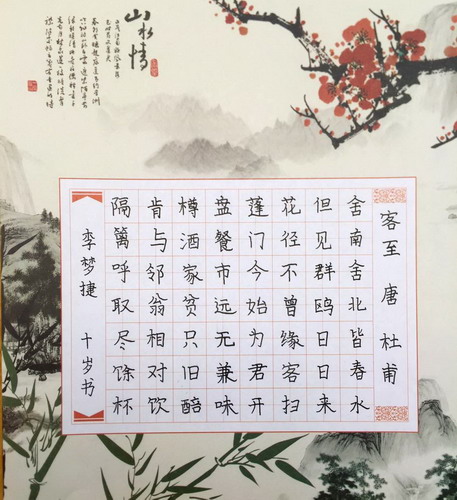 山水情
客至 唐 杜甫
舍南舍北皆春水
但见群鸥日日来
花径不曾缘客扫
蓬门今始为君开
盘餐市远无兼味
樽酒家贫只旧醅
肯与邻翁相对饮
隔篱呼取尽馀杯
李梦捷 十岁书